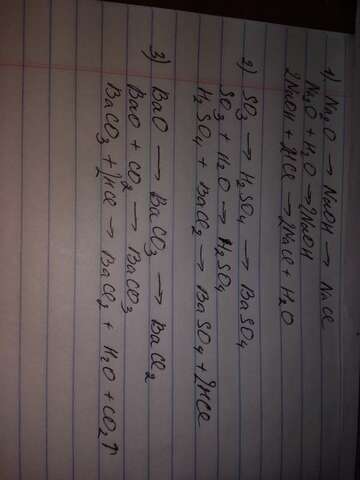 1) Na2O → NaOH → NaCl
Na2O + H2O → 2NaOH
2NaOH + 2HCl → 2NaCl + H2O
2) SO3 → H2SO4 → BaSO4
SO3 + H2O → H2SO4
H2SO4 + BaCl2 → BaSO4 + 2HCl
3) BaO → BaCO3 → BaCl2
BaO + CO2 → BaCO3
BaCO3 + 2HCl → BaCl2 + H2O + CO2↑